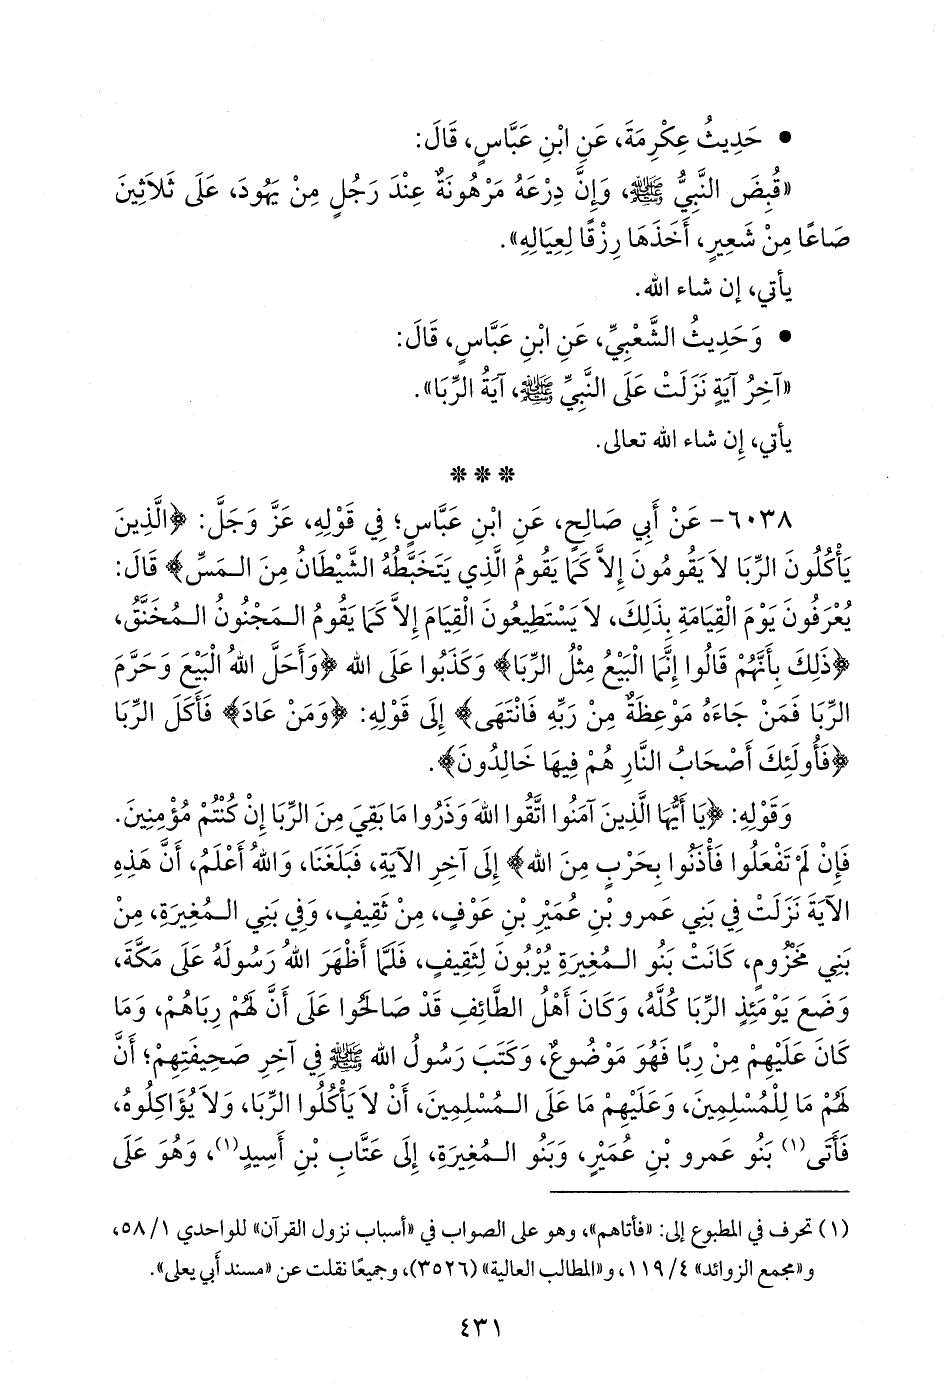 • حَدِيثُ عِكْرِمَةَ، عَنِ ابْنِ عَبَّاسٍ، قَالَ:
«قُبِضَ النَّبِيُّ ﷺ، وَإِنَّ دِرْعَهُ مَرْهُونَةٌ عِنْدَ رَجُلٍ مِنْ يَهُودَ، عَلَى ثَلاَثِينَ
صَاعًا مِنْ شَعِيرٍ، أَخَذَهَا رِزْقًا لِعِيَالِهِ».
يأتي، إن شاء الله.
• وَحَدِيثُ الشَّعْبِيِّ، عَنِ ابْنِ عَبَّاسٍ، قَالَ:
«آخِرُ آيَةٍ نَزَلَتْ عَلَى النَّبِيِّ ﷺ، آيَةُ الرِّبَا».
يأتي، إِن شاء الله تعالى.
* * *
٦٠٣٨- عَنْ أَبِي صَالِحٍ، عَنِ ابْنِ عَبَّاسٍ؛ فِي قَوْلِهِ، عَزَّ وَجَلَّ: ﴿الَّذِينَ
يَأْكُلُونَ الرِّبَا لاَ يَقُومُونَ إِلاَّ كَمَا يَقُومُ الَّذِي يَتَخَبَّطُهُ الشَّيْطَانُ مِنَ الـمَسِّ﴾ قَالَ:
يُعْرَفُونَ يَوْمَ الْقِيَامَةِ بِذَلِكَ، لاَ يَسْتَطِيعُونَ الْقِيَامَ إِلاَّ كَمَا يَقُومُ الـمَجْنُونُ الـمُخَنَّقُ،
﴿ذَلِكَ بِأَنَّهُمْ قَالُوا إِنَّمَا الْبَيْعُ مِثْلُ الرِّبَا﴾ وَكَذَبُوا عَلَى الله ﴿وَأَحَلَّ اللهُ الْبَيْعَ وَحَرَّمَ
الرِّبَا فَمَنْ جَاءَهُ مَوْعِظَةٌ مِنْ رَبِّهِ فَانْتَهَى﴾ إِلَى قَوْلِهِ: ﴿وَمَنْ عَادَ﴾ فَأَكَلَ الرِّبَا
﴿فَأُولَئِكَ أَصْحَابُ النَّارِ هُمْ فِيهَا خَالِدُونَ﴾.
وَقَوْلِهِ: ﴿يَا أَيُّهَا الَّذِينَ آمَنُوا اتَّقُوا اللهَ وَذَرُوا مَا بَقِيَ مِنَ الرِّبَا إِنْ كُنْتُمْ مُؤْمِنِينَ.
فَإِنْ لَمْ تَفْعَلُوا فَأْذَنُوا بِحَرْبٍ مِنَ الله﴾ إِلَى آخِرِ الآيَةِ، فَبَلَغَنَا، وَاللهُ أَعْلَمُ، أَنَّ هَذِهِ
الآيَةَ نَزَلَتْ فِي بَنِي عَمرو بْنِ عُمَيْرِ بْنِ عَوْفٍ، مِنْ ثَقِيفٍ، وَفِي بَنِي الـمُغِيرَةِ، مِنْ
بَنِي مَخْزُومٍ، كَانَتْ بَنُو الـمُغِيرَةِ يُرْبُونَ لِثَقِيفٍ، فَلَمَّا أَظْهَرَ اللهُ رَسُولَهُ عَلَى مَكَّةَ،
وَضَعَ يَوْمَئِذٍ الرِّبَا كُلَّهُ، وَكَانَ أَهْلُ الطَّائِفِ قَدْ صَالَحُوا عَلَى أَنَّ لَهُمْ رِبَاهُمْ، وَمَا
كَانَ عَلَيْهِمْ مِنْ رِبًا فَهُوَ مَوْضُوعٌ، وَكَتَبَ رَسُولُ الله ﷺ فِي آخِرِ صَحِيفَتِهِمْ؛ أَنَّ
لَهُمْ مَا لِلْمُسْلِمِينَ، وَعَلَيْهِمْ مَا عَلَى الـمُسْلِمِينَ، أَنْ لاَ يَأْكُلُوا الرِّبَا، وَلاَ يُؤَاكِلُوهُ،
فَأَتَى(١) بَنُو عَمرو بْنِ عُمَيْرٍ، وَبَنُو الـمُغِيرَةِ، إِلَى عَتَّابِ بْنِ أَسِيدٍ(١)، وَهُوَ عَلَى
(١) تحرف في المطبوع إلى: «فأتاهم»، وهو على الصواب في «أسباب نزول القرآن» للواحدي ٥٨/١،
و«مجمع الزوائد» ١١٩/٤، و«المطالب العالية» (٣٥٢٦)، وجميعًا نقلت عن «مسند أَبي يعلى».
٤٣١